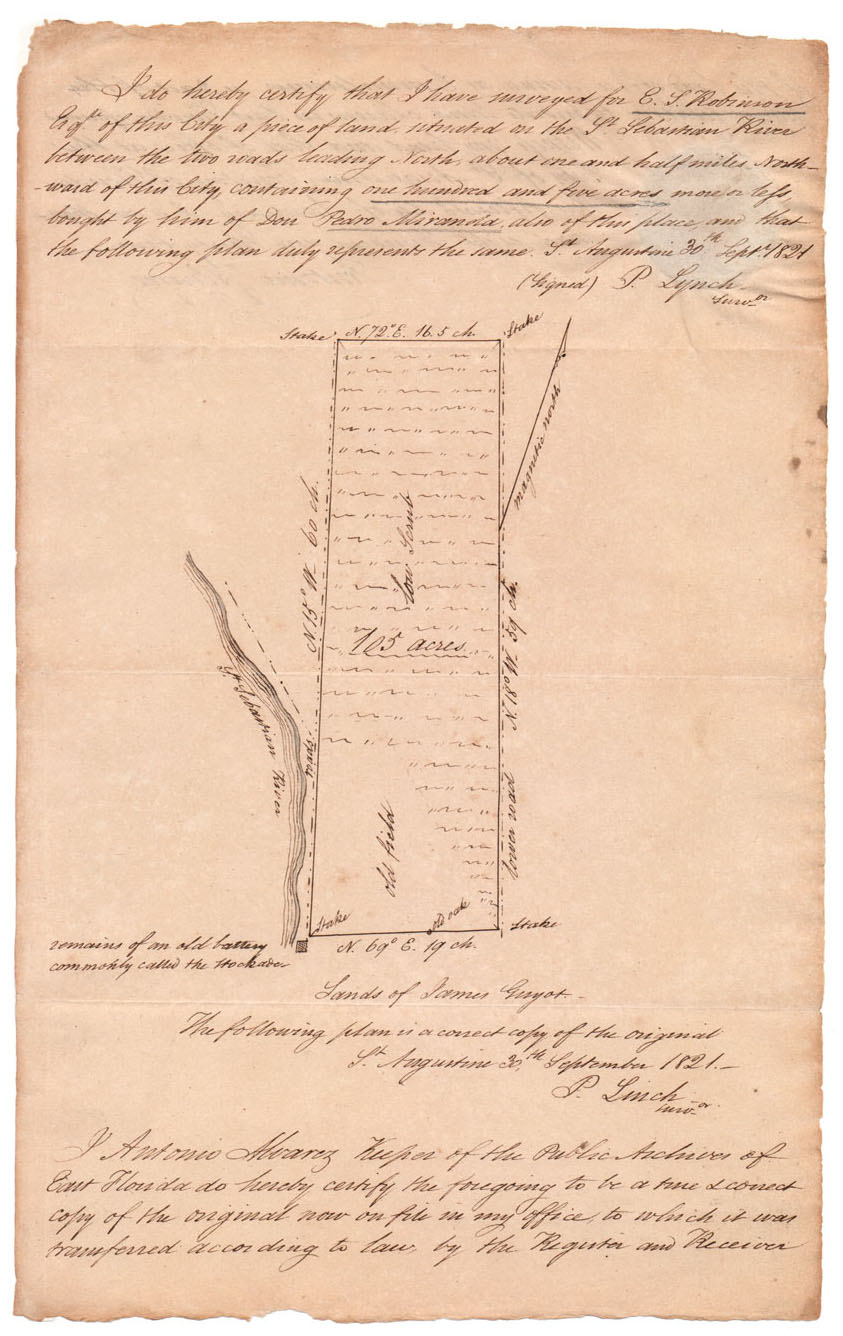 I do hereby certify that I have surveyed for E. S. Robinson
Esqr. of this City a piece of land situated on the St Sebastian River
between the two roads leading North, about one and half miles North-
-ward of this City, containing one hundred and five acres more or less,
bought by him of Don Pedro Miranda, also of this place, and that
the following plan duly represents the same. St Augustine 30th Septr. 1821
(Signed) P. Lynch
Survor
Stake N. 72° E. 16.5 ch. Stake
magnetic north
N 15° W 60 ch.
low Scrub
N. 18° W 59 ch.
105 acres
St Sebastian River
roads
lower road
old field
Stake
old oak
Stake
N. 69° E. 19 ch.
remains of an old battery
commonly called the Stockade
Lands of James Guyot.
The following plan is a correct copy of the original
St Augustine 30th September 1821.
P. Linch
Survor.
I Antonio Alvarez Keeper of the Public Archives of
East Florida do hereby certify the foregoing to be a true & correct
copy of the original now on file in my office, to which it was
transferred according to law, by the Register and Receiver